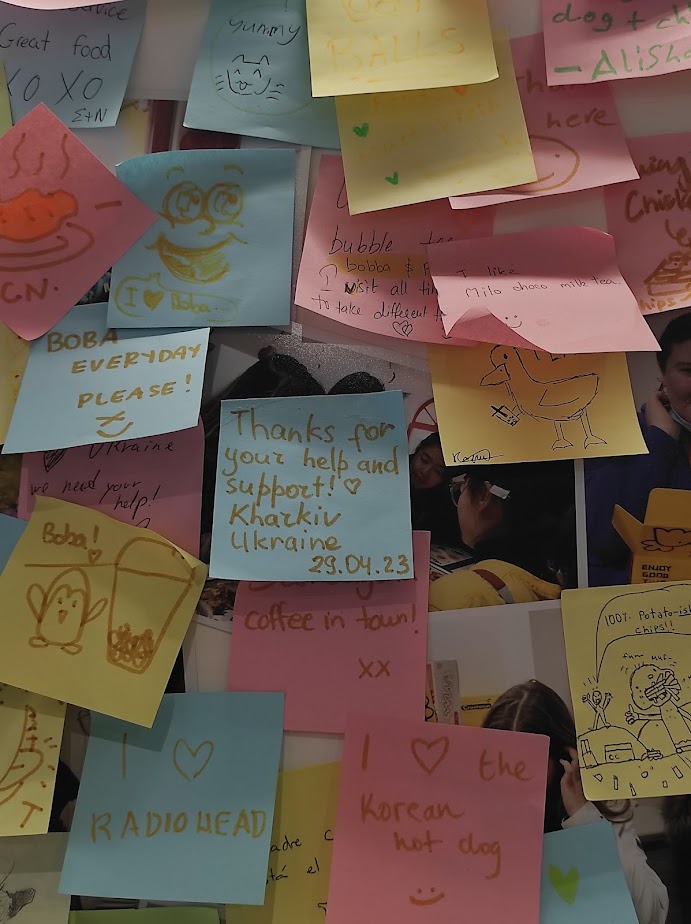 Great food
XO XO
Σ+N
yummy
BALLS
dog + ch
- Alisha
here
C.N.
I ♥ Boba
bubble tea
bobba &
I visit all
to take different
I like
Milo choco milk tea.
BOBA
EVERYDAY
PLEASE!
Ukraine
we need your
help!
Thanks for
your help and
support! ♡
Kharkiv
Ukraine
29.04.23
ENJOY
GOOD
Boba!
coffee in town!
xx
100% Potato-ish
chips!!
I ♡
RADIOHEAD
I ♡ the
Korean
hot dog